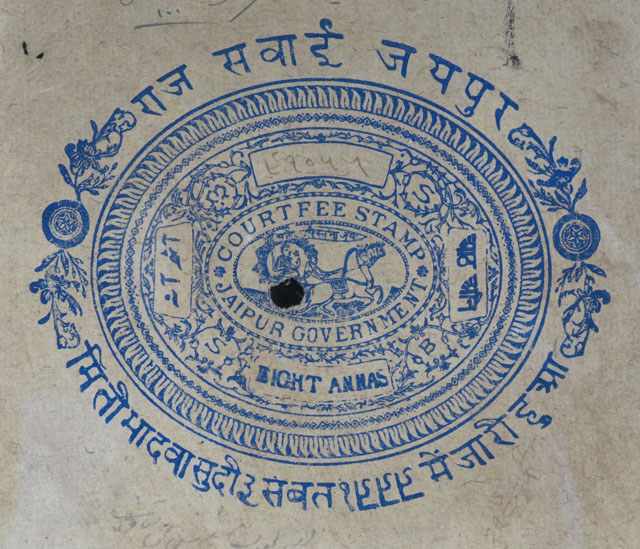 राज सवाई जयपुर
९१०५५
COURT FEE STAMP
JAIPUR GOVERNMENT
आठ आने
S
S
B
EIGHT ANNAS
मिती भादवा सुदी ३ संबत १९९९ में जारी हुआ